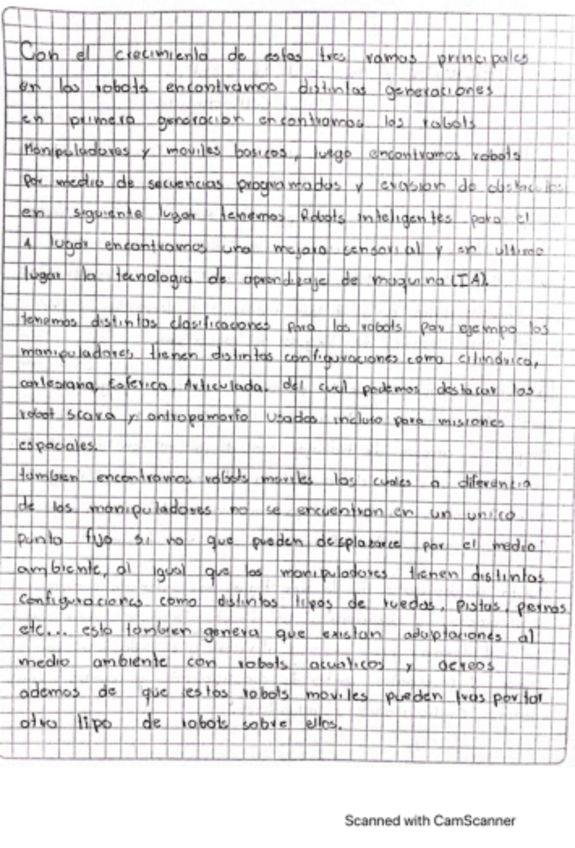 Con el crecimiento de estas tres ramas principales
en los robots encontramos distintas generaciones
en primera generación encontramos los robots
Manipuladores y moviles basicos, luego encontramos robots
por medio de secuencias programadas y evasion de obstaculos
en siguiente lugar tenemos Robots inteligentes para el
4 lugar encontramos una mejora sensorial y en ultimo
lugar la tecnologia de aprendizaje de maquina (IA).
tenemos distintas clasificaciones para los robots por ejempo los
manipuladores tienen distintas configuraciones como cilindrica,
cartesiana, Esferica, Articulada. del cual podemos destacar los
robot scara y antropomorfo usados incluso para misiones
espaciales.
tambien encontramos robots moviles los cuales a diferencia
de los manipuladores no se encuentran en un unico
punto fijo si no que pueden desplazarce por el medio
ambiente, al igual que los manipuladores tienen distintas
configuraciones como distintos tipos de ruedas, pistas, piernas
etc... esto tambien genera que existan adaptaciones al
medio ambiente con robots acuaticos y aereos
ademas de que estos robots moviles pueden trasportar
otro tipo de robots sobre ellos.
Scanned with CamScanner